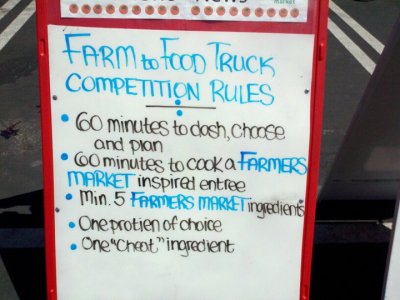 News
market
FARM to FOOD TRUCK
COMPETITION RULES
• 60 minutes to dash, choose
and plan
• 60 minutes to cook a FARMERS
MARKET inspired entree
• Min. 5 FARMERS MARKET ingredients
• One protien of choice
• One "Cheat" ingredient